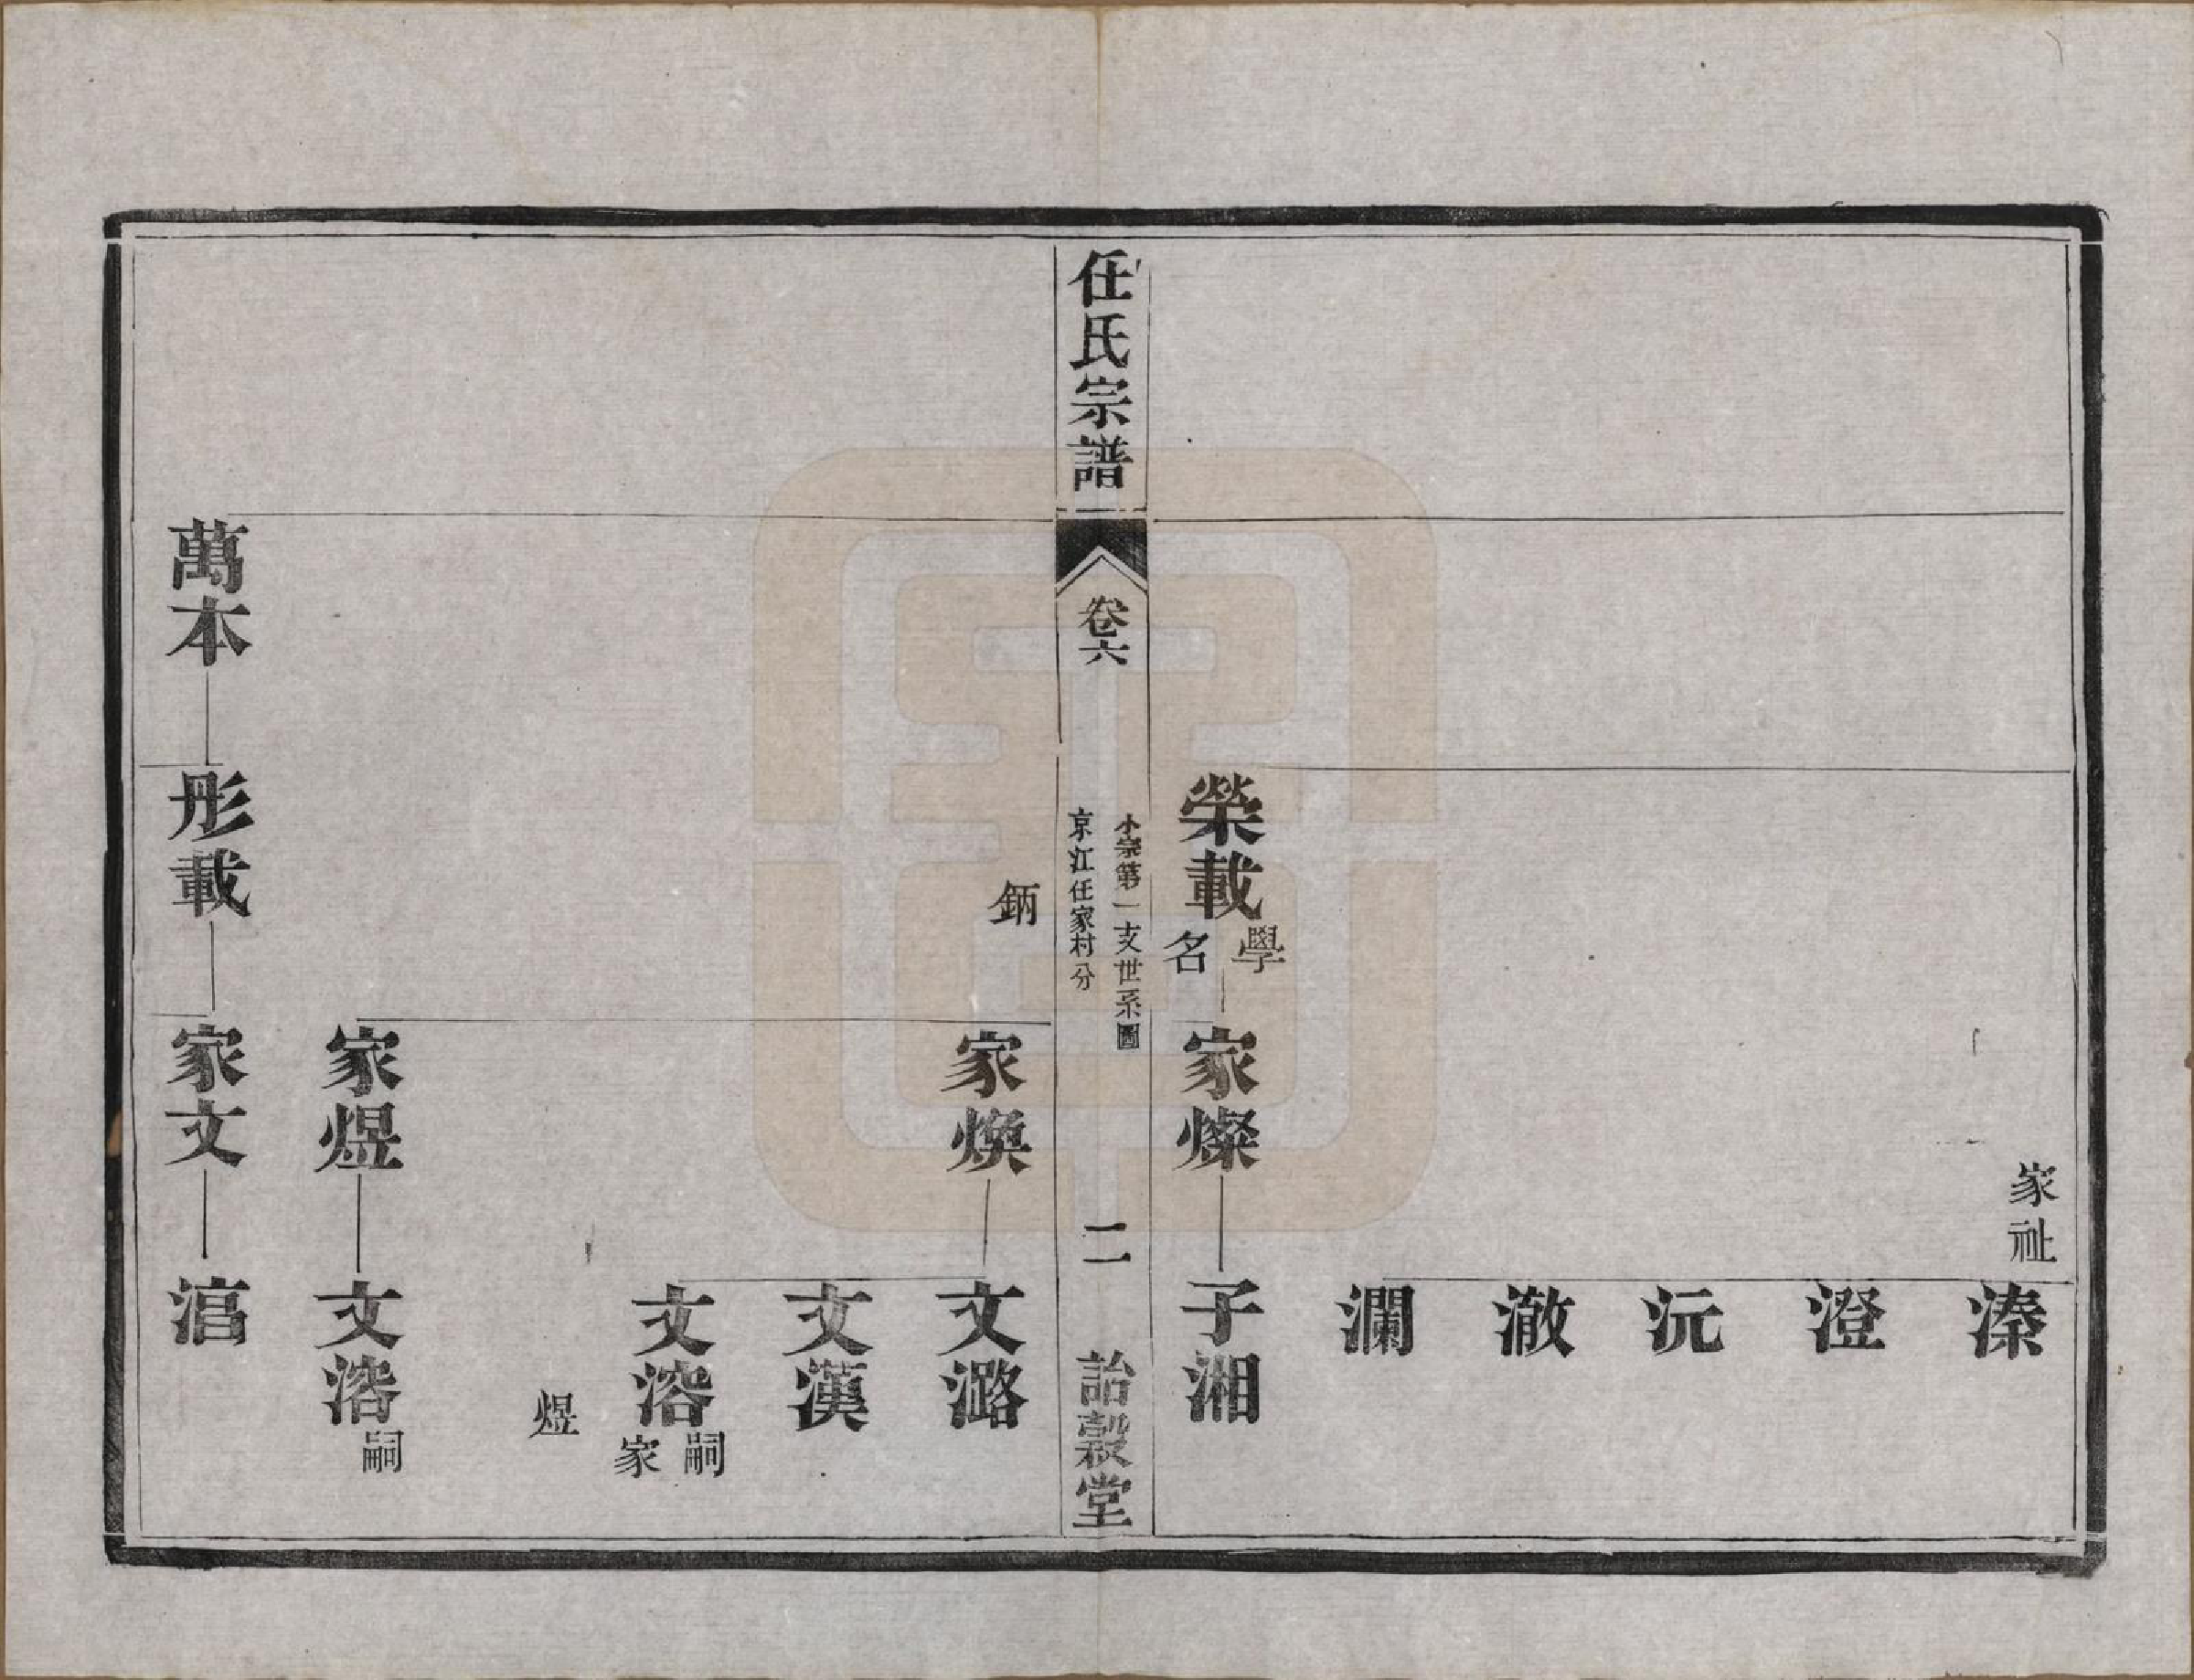 家祉
溱
澄
沅
澈
瀾
榮載
學
名
家燦
子湘
任氏宗譜
卷六
小宗第一支世系圖
京江任家村分
二
詒穀堂
鈵
家煥
文潞
文漢
文溶
嗣
家
煜
家煜
文溶
嗣
萬本
彤載
家文
涫